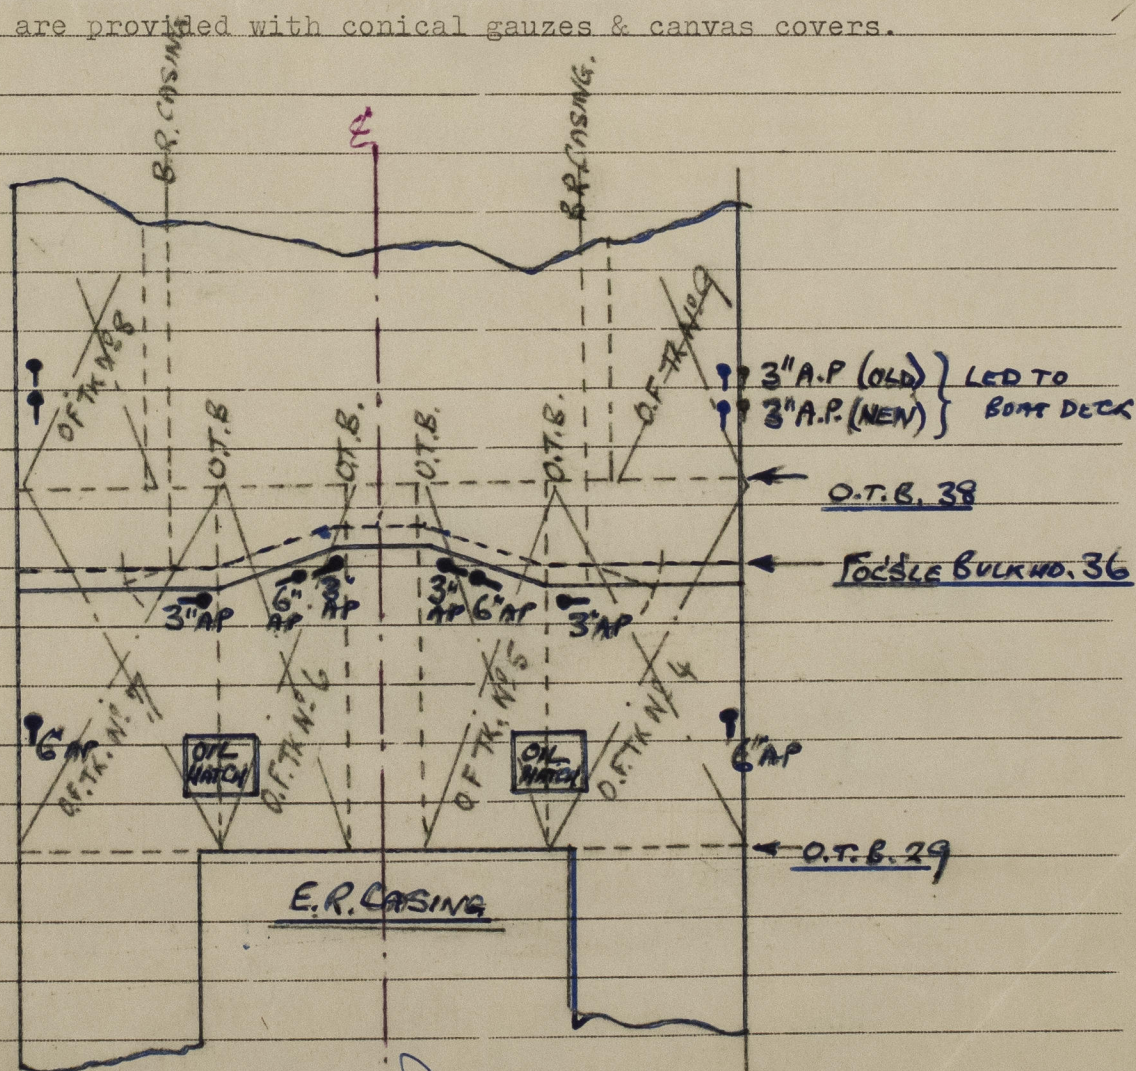 are provided with conical gauzes & canvas covers.
B.R. CASING
B.R. CASING.
℄
O.F. TK Nº 8
O.F. TK Nº 9
3" A.P (OLD) } LED TO
3" A.P. (NEW) } BOAT DECK
O.T.B
O.T.B.
O.T.B.
O.T.B.
O.T.B. 38
FOC'SLE BULKHD. 36
3" AP
6" AP
3" AP
3" AP
6" AP
3" AP
6" AP
O.F. TK. Nº 7
OIL HATCH
O.F. TK Nº 6
O F TK. Nº 5
OIL HATCH
O.F. TK Nº 4
6" AP
O.T.B. 29
E.R. CASING